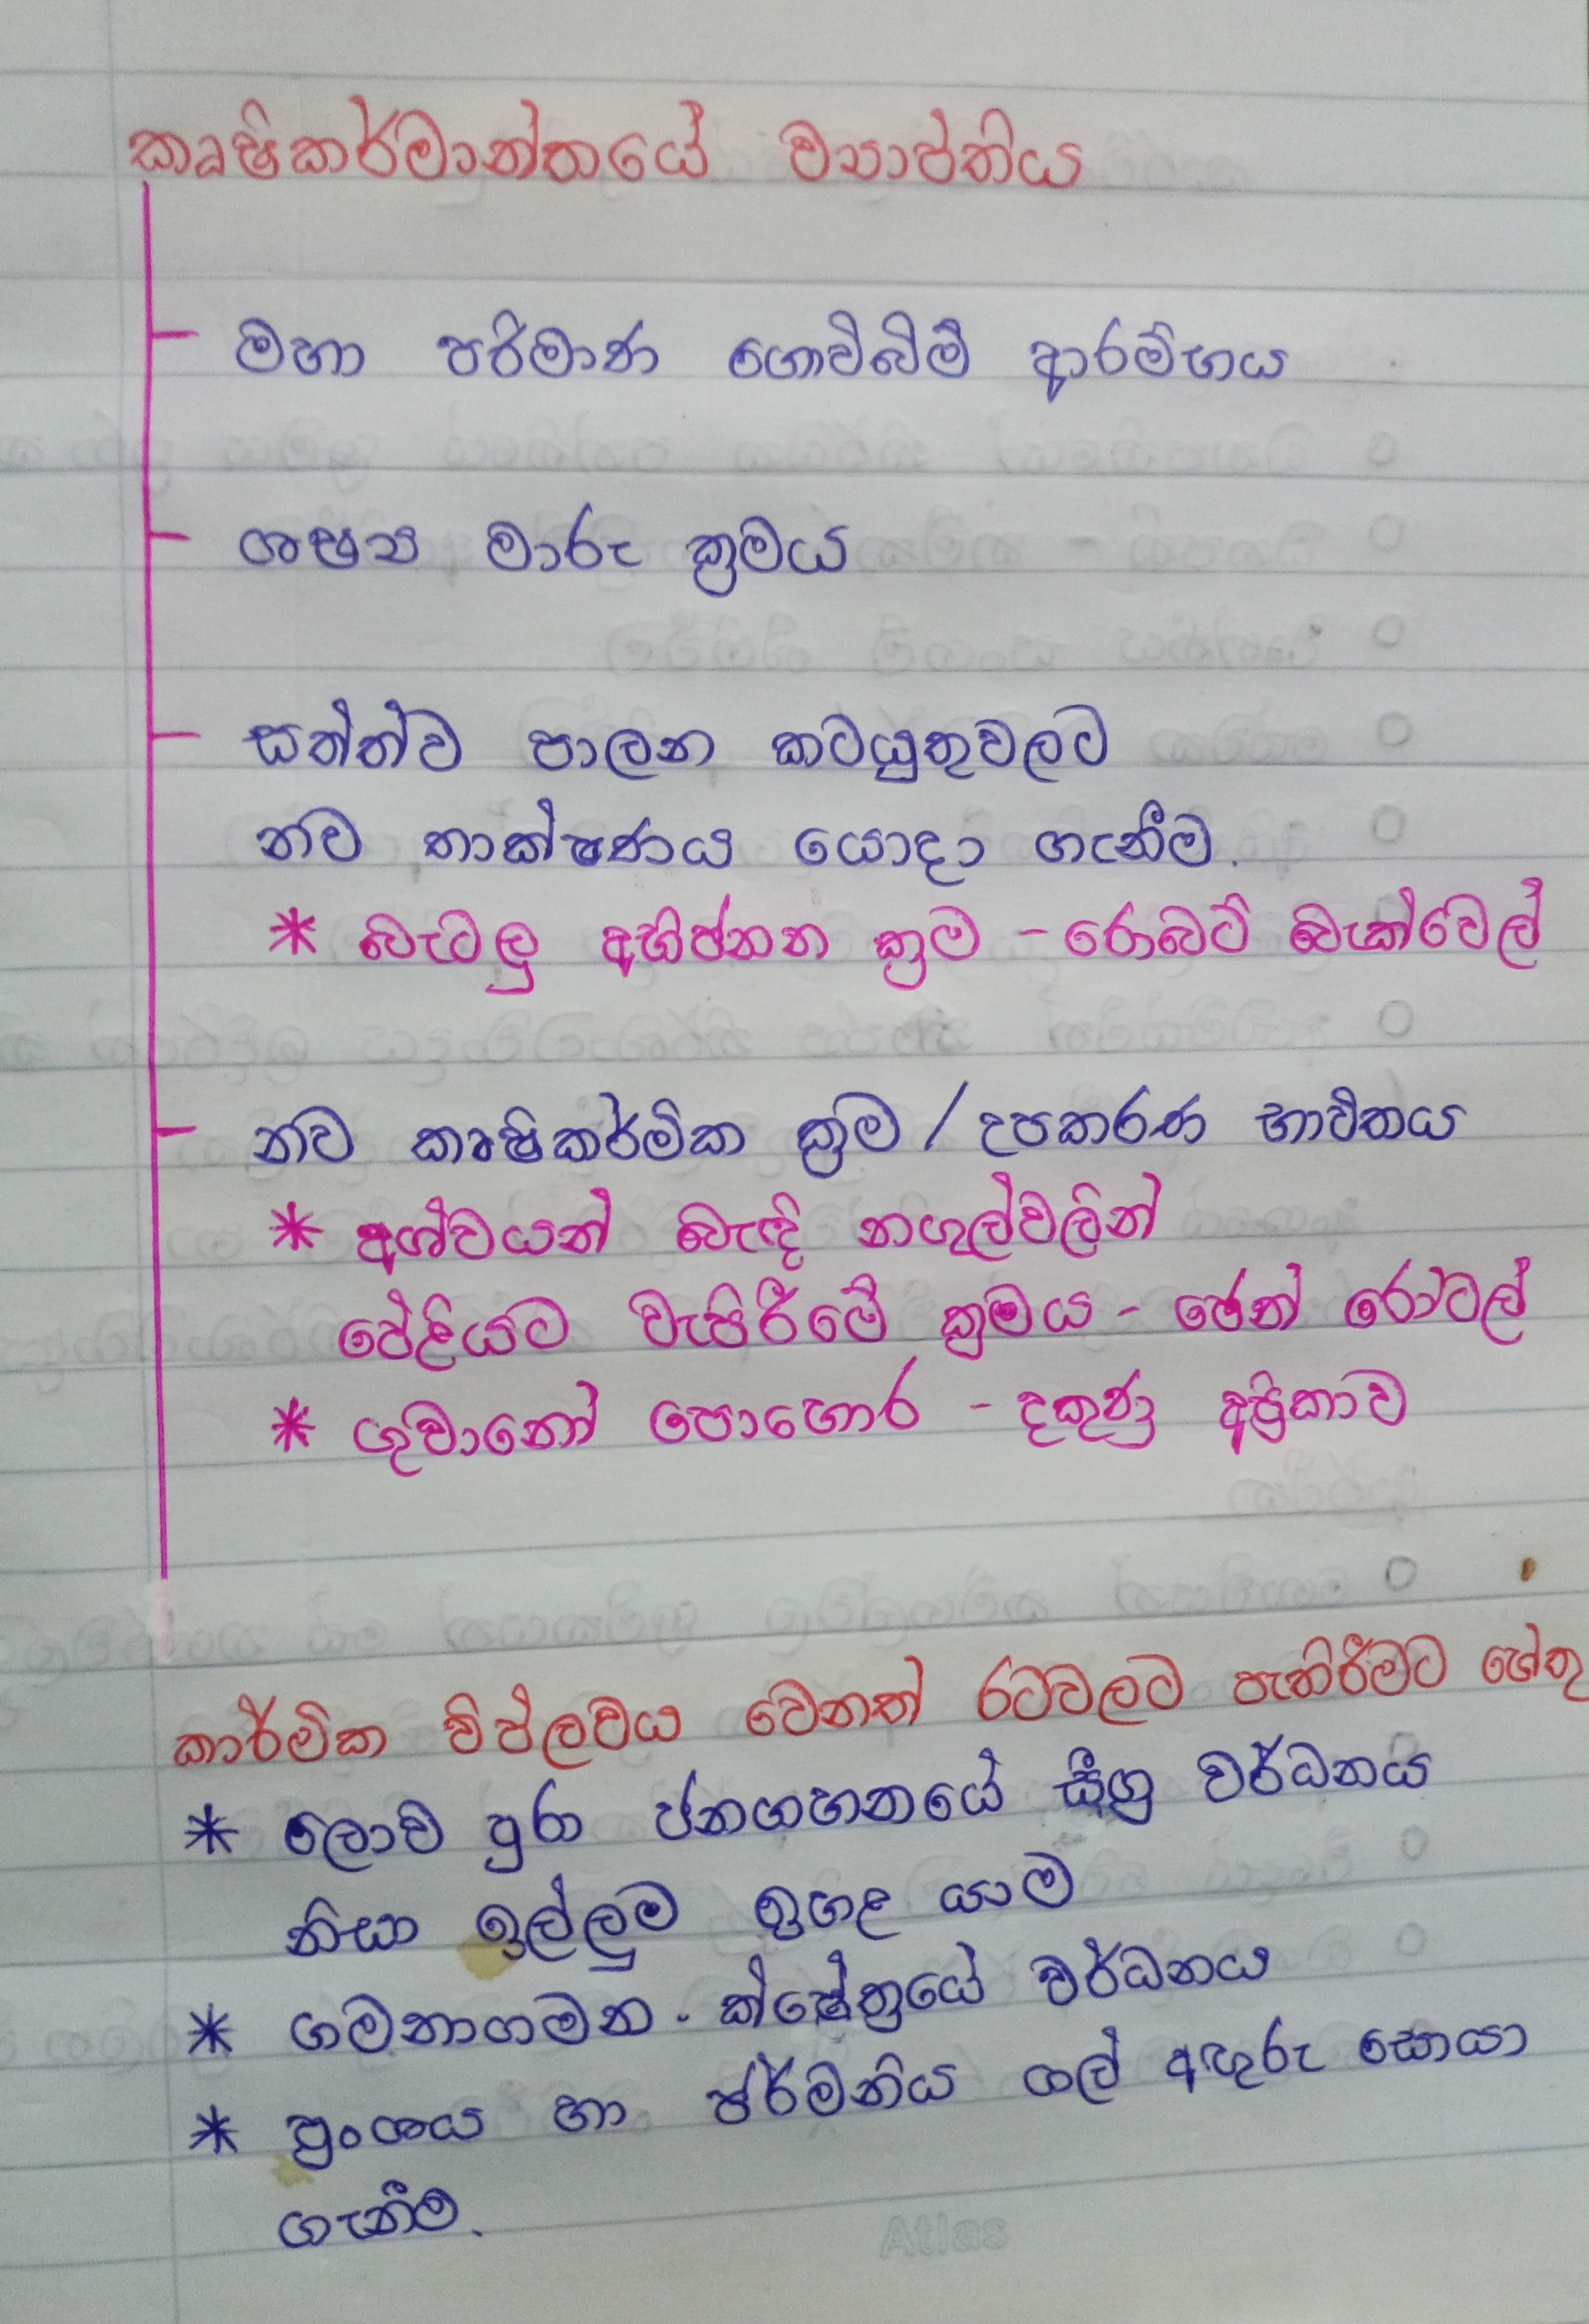 කෘෂිකර්මාන්තයේ ව්‍යාප්තිය
මහා පරිමාණ ගොවිබිම් ආරම්භය
ශෂ්‍ය මාරු ක්‍රමය
සත්ත්ව පාලන කටයුතුවලට
නව තාක්ෂණය යොදා ගැනීම.
* බැටලු අභිජනන ක්‍රම - රොබට් බැක්වෙල්
නව කෘෂිකර්මික ක්‍රම / උපකරණ භාවිතය
* අශ්වයන් බැඳි නගුල්වලින්
පේළියට වැපිරීමේ ක්‍රමය - ජෙන් රෝටල්
* ගුවානෝ පොහොර - දකුණු අප්‍රිකාව
කාර්මික විප්ලවය වෙනත් රටවලට පැතිරීමට හේතු
* ලොව පුරා ජනගහනයේ සීග්‍ර වර්ධනය
නිසා ඉල්ලුම ඉහළ යාම
* ගමනාගමන ක්ෂේත්‍රයේ වර්ධනය
* ප්‍රංශය හා ජර්මනිය ගල් අඟුරු සොයා
ගැනීම.
Atlas